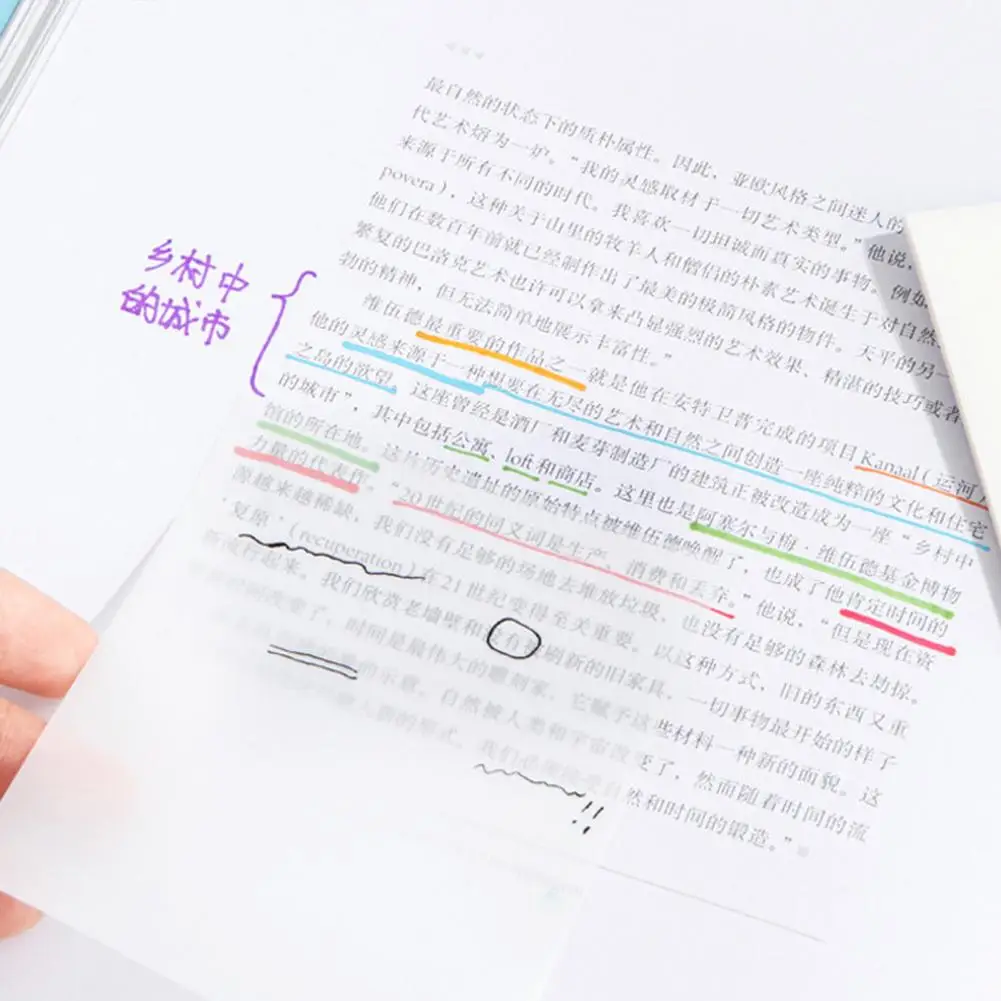 乡村中
的城市
最自然的状态下的质朴属性。因此，亚欧风格之间迷人的
代艺术熔为一炉。“我的灵感取材于一切艺术类型。”他说，
来源于所有不同的时代。我喜欢一切坦诚而真实的事物，例如
povera），这种关于山里的牧羊人和僧侣的朴素艺术诞生于对自然
他们在数百年前就已经制作出了最美的极简风格的物件。天平的另一
繁复的巴洛克艺术也许可以拿来凸显强烈的艺术效果、精湛的技巧或者
勃的精神，但无法简单地展示丰富性。”
维伍德最重要的作品之一就是他在安特卫普完成的项目Kanaal（运河）
他的灵感来源于一种想要在无尽的艺术和自然之间创造一座纯粹的文化和住宅
之岛的欲望。这座曾经是酒厂和麦芽制造厂的建筑正被改造成为一座“乡村中
的城市”，其中包括公寓、loft和商店。这里也是阿塞尔与梅·维伍德基金博物
馆的所在地。这片历史遗址的原始特点被维伍德唤醒了，也成了他肯定时间的
力量的代表作。“20世纪的同义词是生产、消费和丢弃。”他说，“但是现在资
源越来越稀缺，我们没有足够的场地去堆放垃圾，也没有足够的森林去劫掠。
‘复原’（recuperation）在21世纪变得至关重要。以这种方式，旧的东西又重
新流行起来。我们欣赏老墙壁和没有被刷新的旧家具，一切事物最开始的样子
改变了，时间是最伟大的雕刻家，它赋予这些材料一种新的面貌。这
的示意。自然被人类和宇宙改变了，然而随着时间的流
新的形式，我们必须接受自然和时间的锻造。”
!!